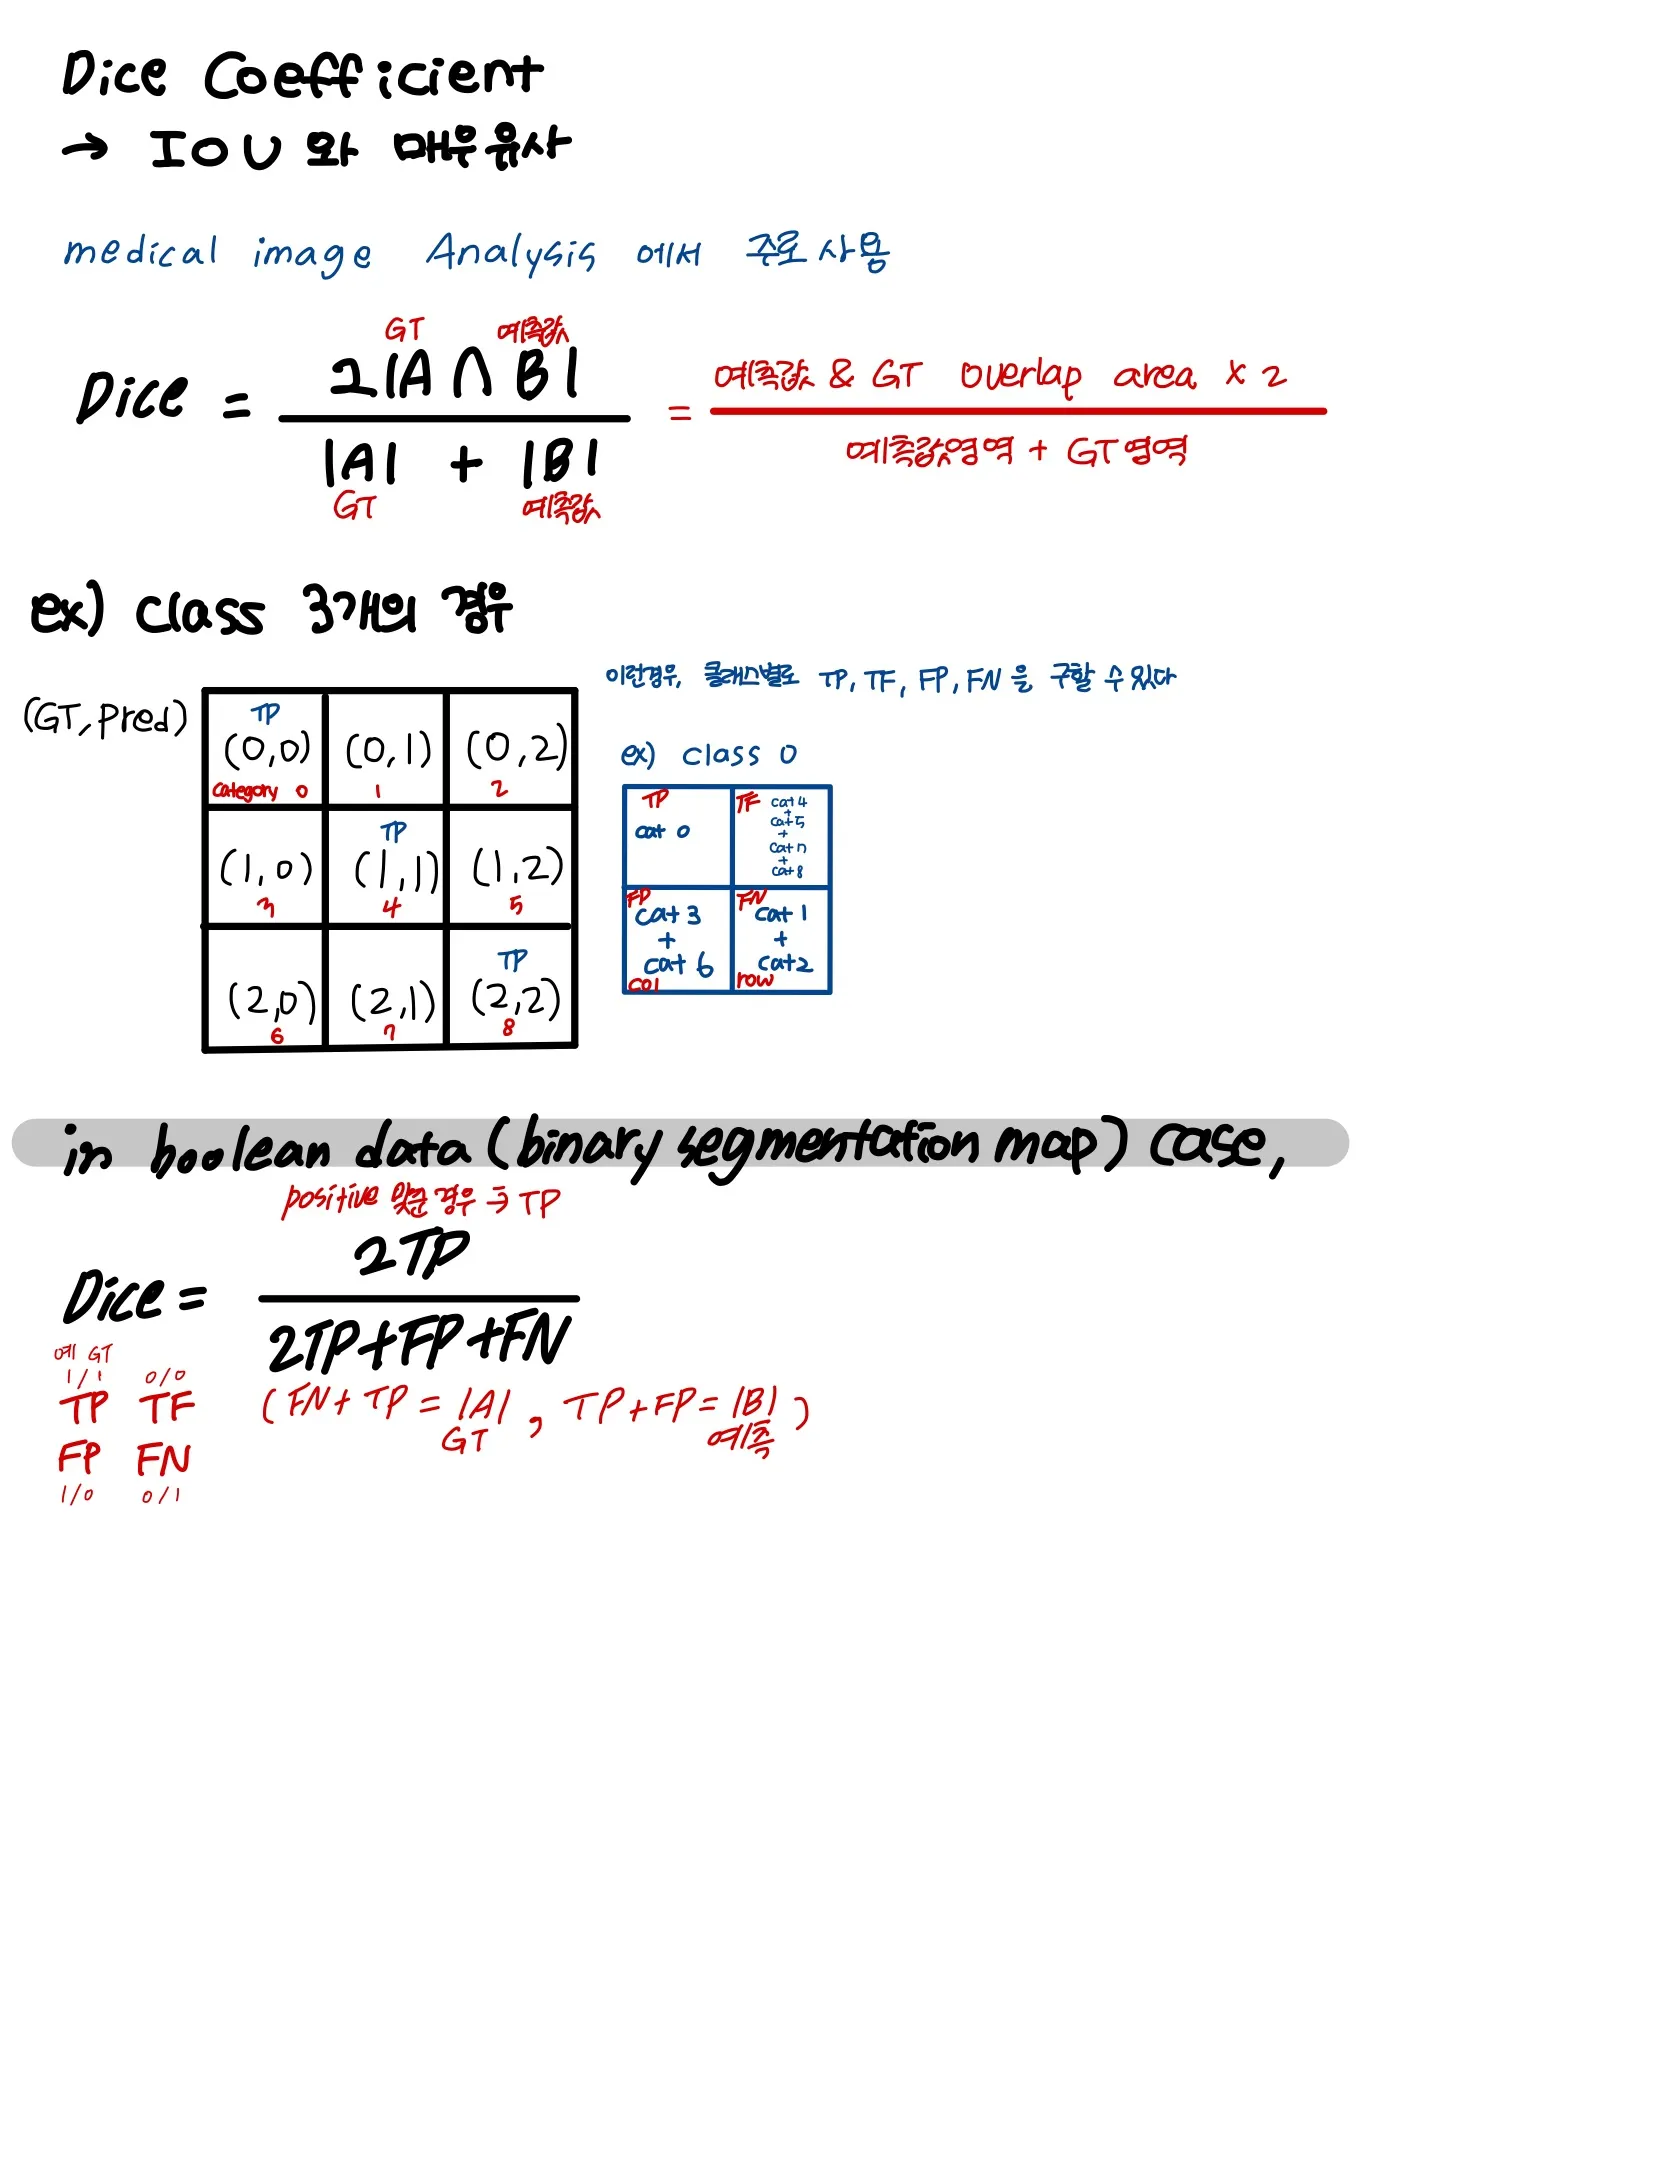 Dice Coefficient
→ IOU와 매우유사
medical image Analysis 에서 주로 사용
GT 예측값
Dice = 2|A∩B| / |A| + |B| = 예측값 & GT overlap area x 2 / 예측값영역 + GT영역
GT 예측값
ex) class 3개의 경우
이런경우, 클래스별로 TP, TF, FP, FN을 구할 수 있다
(GT, Pred)
TP
(0,0) (0,1) (0,2)
category 0 1 2
TP
(1,0) (1,1) (1,2)
3 4 5
TP
(2,0) (2,1) (2,2)
6 7 8
ex) class 0
TP
cat 0
TF
cat4
+
cat5
+
cat7
+
cat8
FP
cat 3
+
cat 6
col
FN
cat 1
+
cat2
row
in boolean data (binary segmentation map) case,
positive 맞춘 경우 → TP
Dice = 2TP / 2TP+FP+FN
(FN+TP = |A|, TP+FP = |B|)
GT 예측
예 GT
1/1 0/0
TP TF
FP FN
1/0 0/1